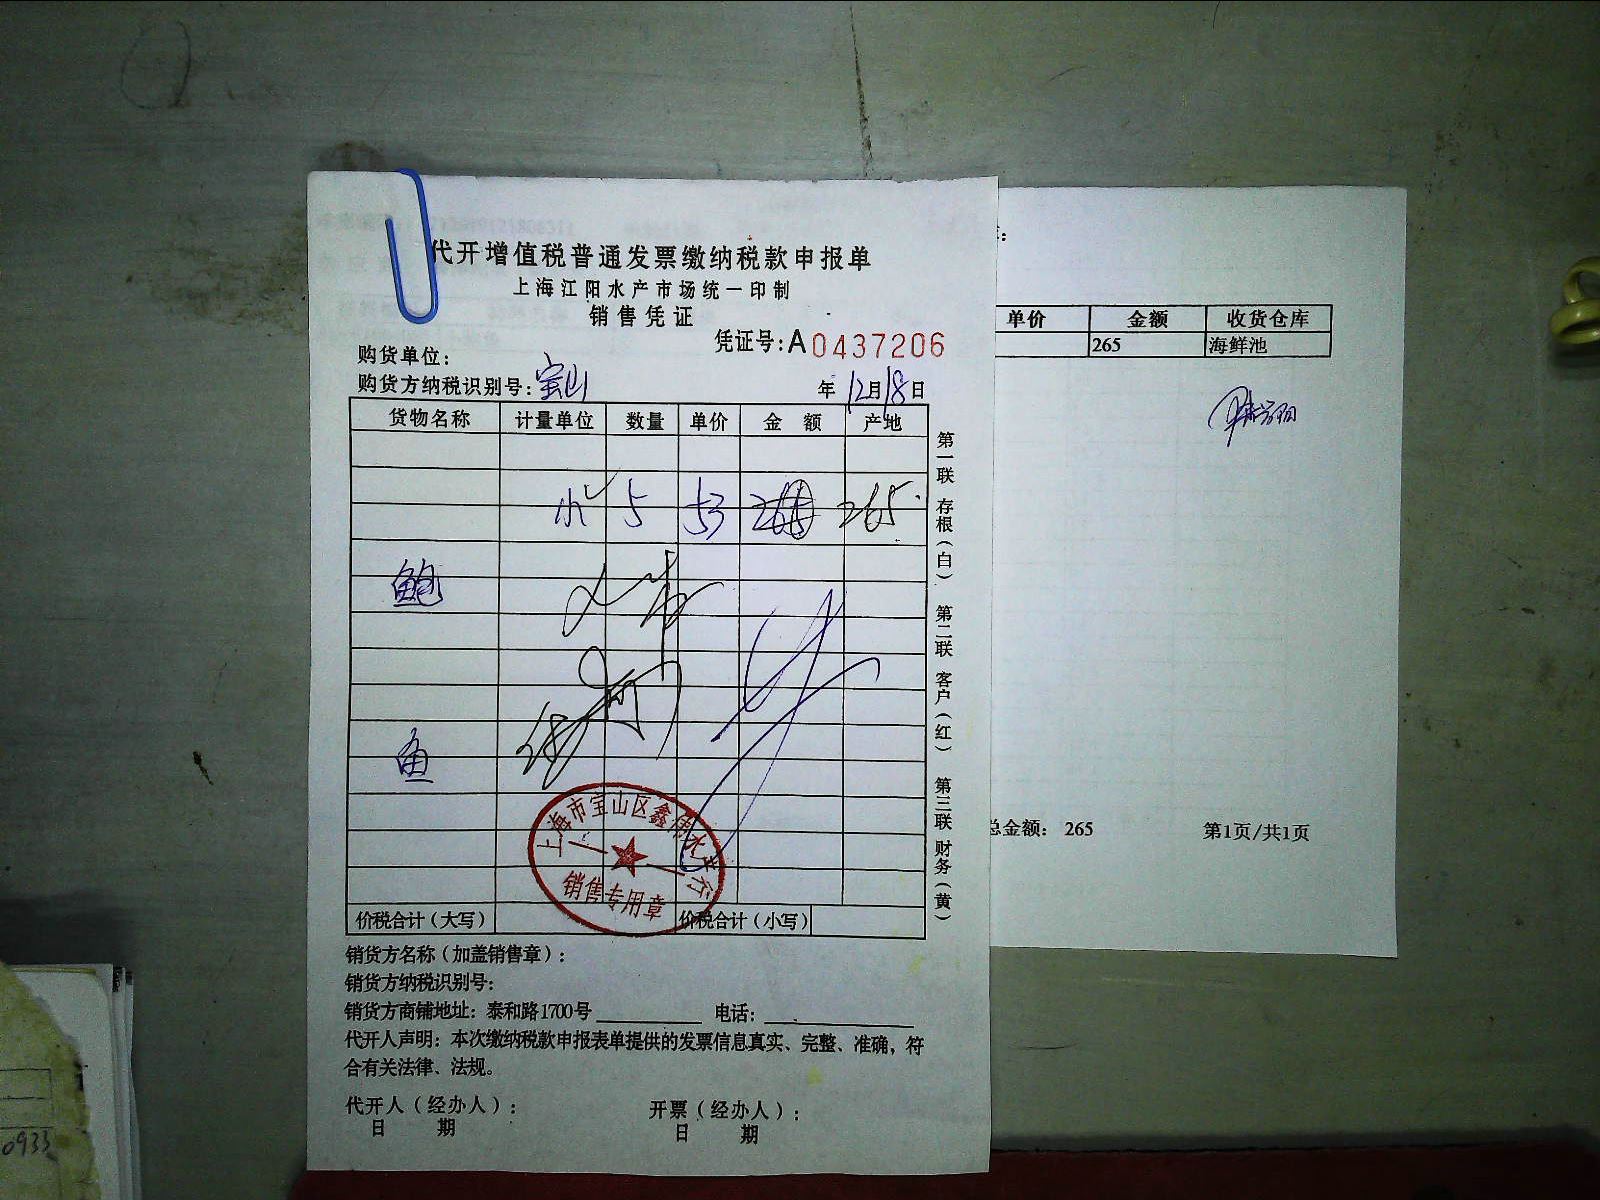 代开增值税普通发票缴纳税款申报单
上海江阳水产市场统一印制
销售凭证
凭证号:A0437206
购货单位:
购货方纳税识别号:宝山 年12月18日
货物名称 计量单位 数量 单价 金 额 产地
5 53 265
鲍
鱼
上海市宝山区鑫伟水产行
销售专用章
价税合计(大写) 价税合计(小写)
第一联 存根(白) 第二联 客户(红) 第三联 财务(黄)
销货方名称(加盖销售章):
销货方纳税识别号:
销货方商铺地址: 泰和路1700号 电话:
代开人声明: 本次缴纳税款申报表单提供的发票信息真实、完整、准确, 符
合有关法律、法规。
代开人(经办人): 开票(经办人):
日 期 日 期
单价 金额 收货仓库
265 海鲜池
总金额: 265 第1页/共1页
0933